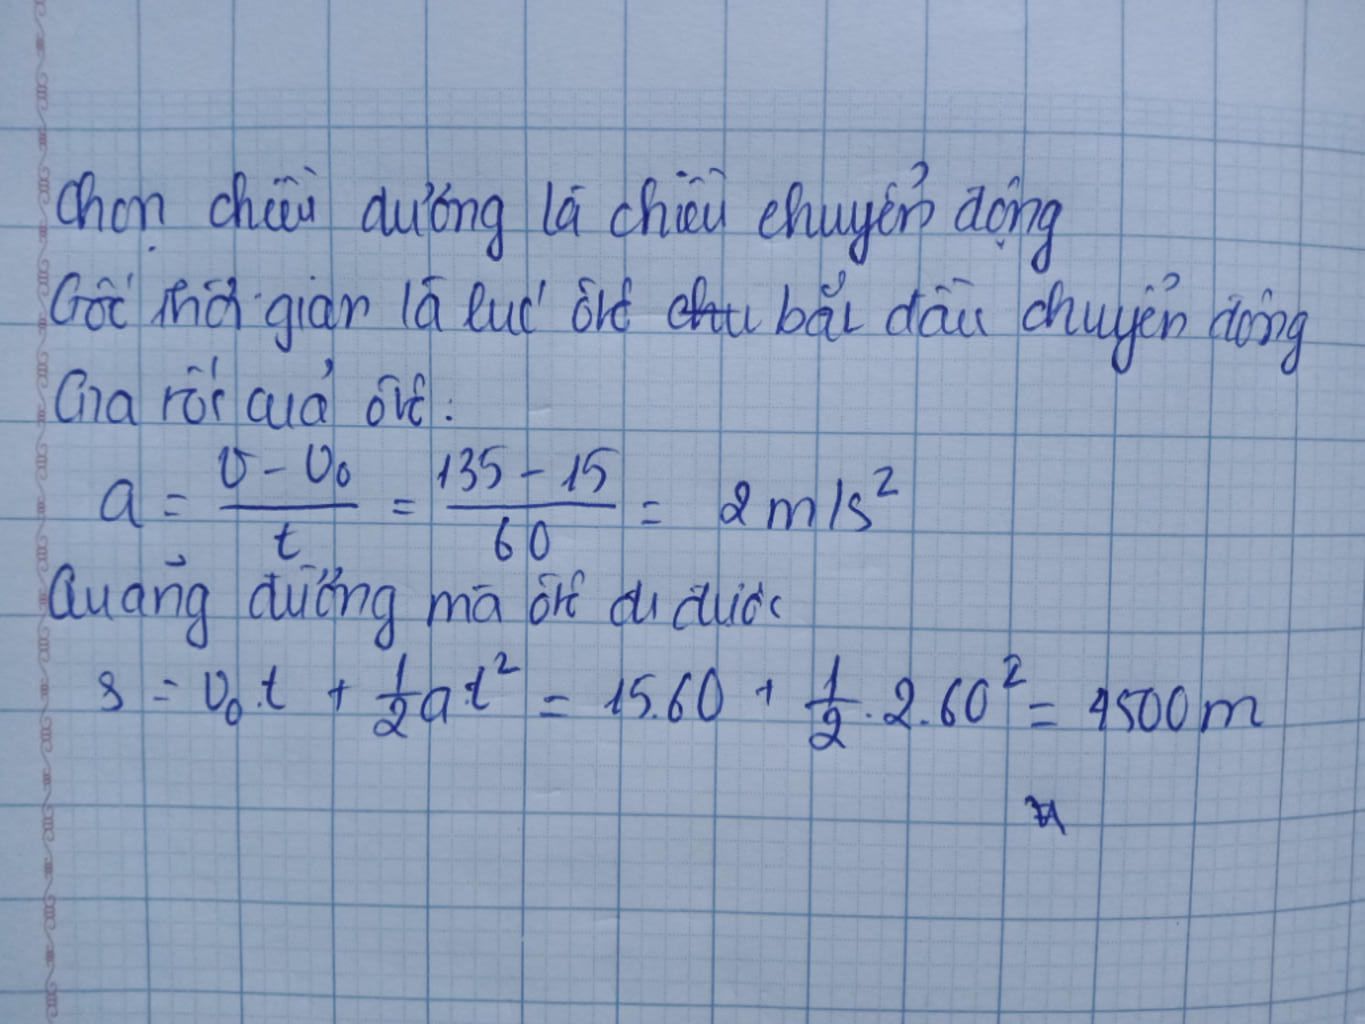 Chọn chiều dương là chiều chuyển động
Gốc thời gian là lúc ôtô chu bắt đầu chuyển động
Gia tốc của ôtô:
a = \frac{v - v₀}{t} = \frac{135 - 15}{60} = 2 m/s²
Quảng đường mà ôtô đi được
s = v₀.t + \frac{1}{2}a.t² = 15.60 + \frac{1}{2}.2.60² = 4500 m